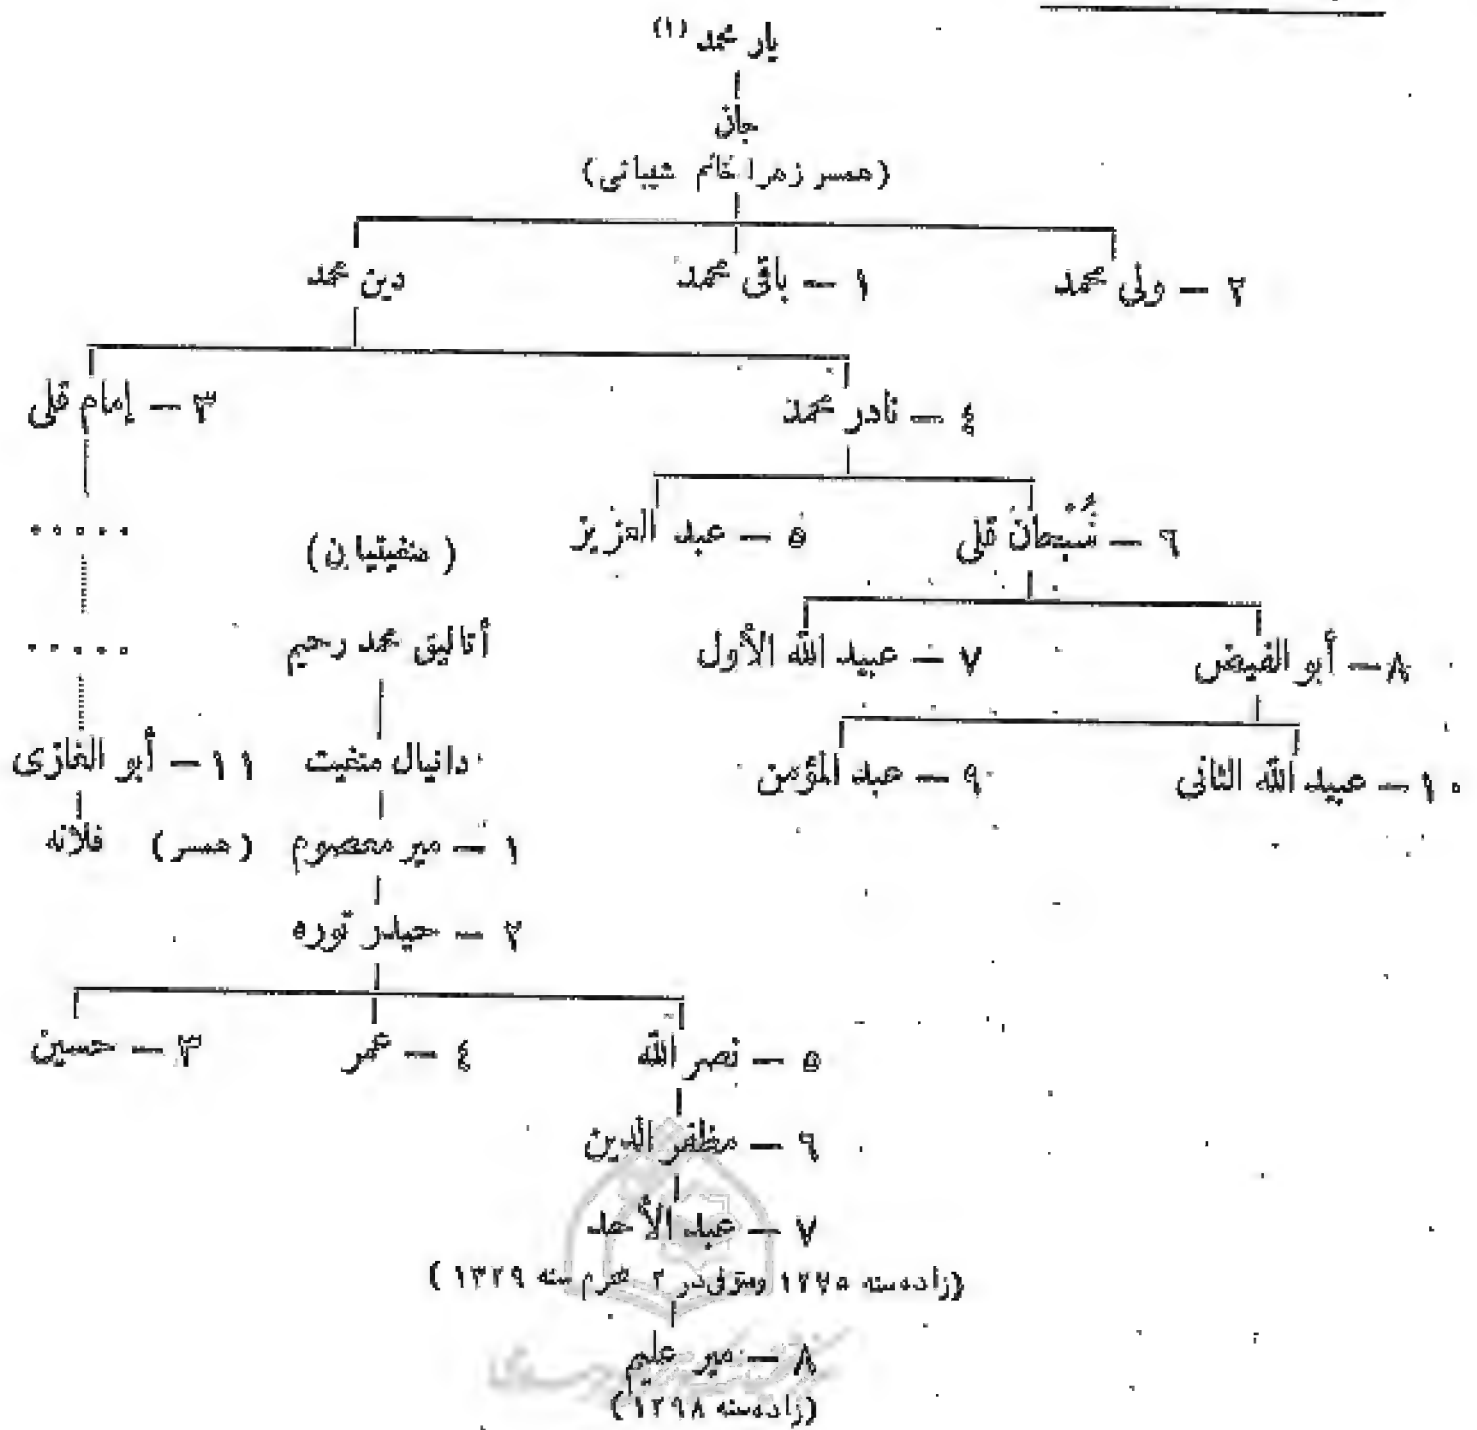 یار محمد (۱)
جان
(همسر زهرا خانم شیبانی)
۲ — ولی محمد
۱ — باقی محمد
دین محمد
٤ — نادر محمد
۳ — إمام قلی
٦ — سُبْحانْ قلی
٥ — عبد العزیز
(منغیتیان)
.....
۸ — أبو الفیض
۷ — عبید الله الأول
أتالیق محمد رحیم
.....
۱۰ — عبید الله الثانی
۹ — عبد المؤمن
دانیال منغیت
۱۱ — أبو الغازی
۱ — میر معصوم (همسر) فلانه
۲ — حیدر توره
٥ — نصر الله
٤ — عمر
۳ — حسین
٦ — مظفر الدین
۷ — عبد الأحد
(زاده سنه ۱۲۷٥ ومتوفی در ۲ محرم سنه ۱۳۲۹)
۸ — میر علیم
(زاده سنه ۱۲۹۸)